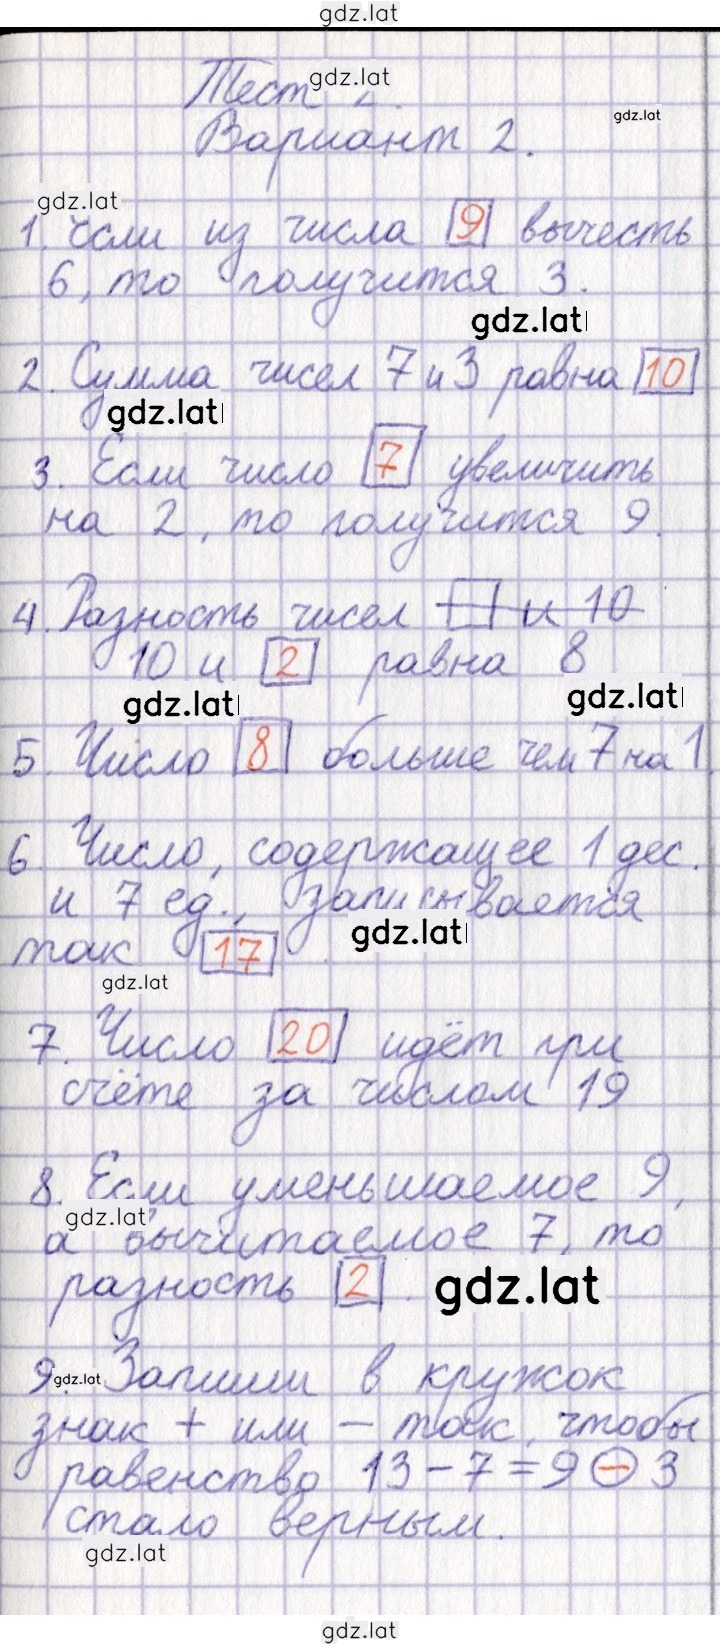 gdz.lat
Тест 2.
gdz.lat
gdz.lat
Вариант 2.
gdz.lat
1. Если из числа 9 вычесть
6, то получится 3.
gdz.lat
2. Сумма чисел 7 и 3 равна 10
gdz.lat
3. Если число 7 увеличить
на 2, то получится 9.
4. Разность чисел и 10
10 и 2 равна 8
gdz.lat
gdz.lat
5. Число 8 больше чем 7 на 1.
6. Число, содержащее 1 дес.
и 7 ед., записывается
gdz.lat
так 17.
gdz.lat
7. Число 20 идёт при
счёте за числом 19
8. Если уменьшаемое 9,
gdz.lat
а вычитаемое 7, то
разность 2.
gdz.lat
9. Запиши в кружок
gdz.lat
знак + или - так, чтобы
равенство 13 - 7 = 9 - 3
стало верным.
gdz.lat
gdz.lat